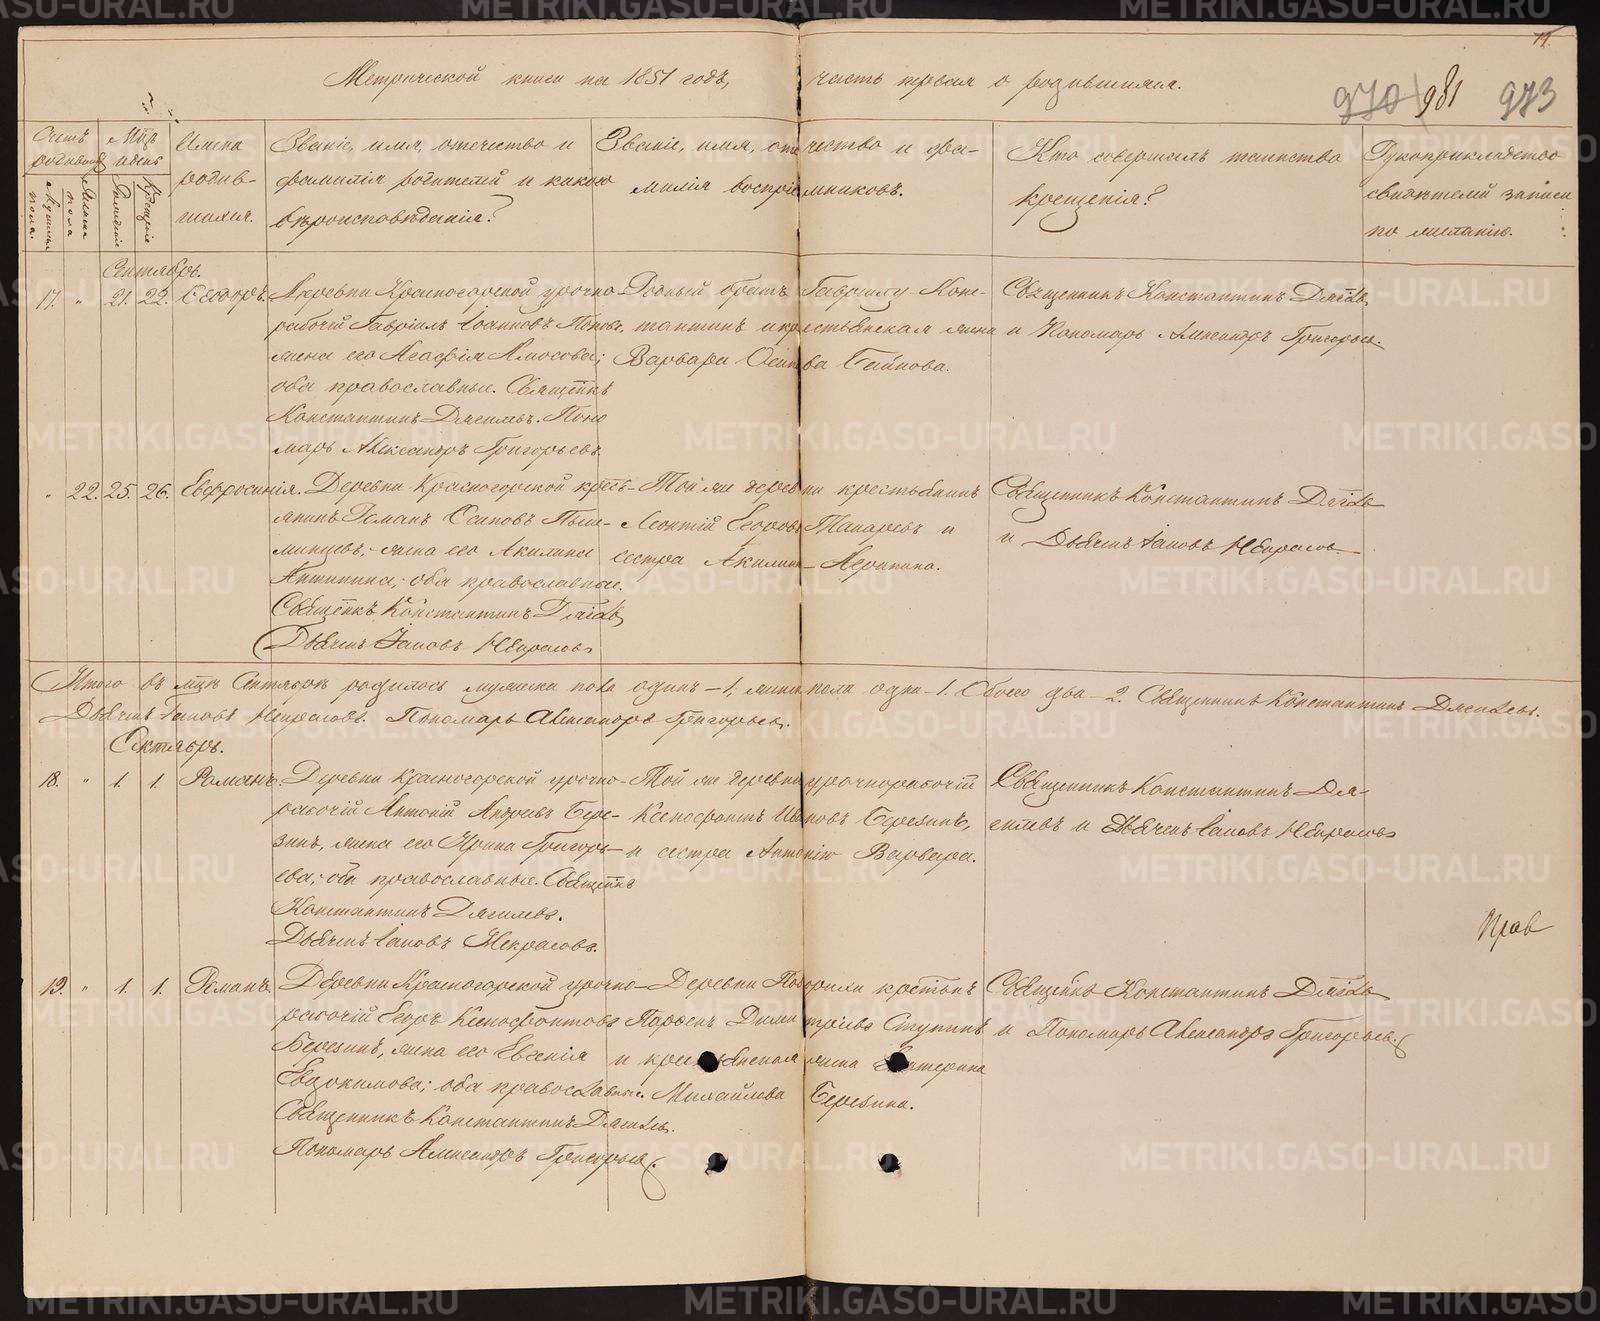 11.
Метрической книги на 1851 годъ, часть первая о родившихся.
970 981 973
Счетъ родившихся
Мужеска пола.
Женска пола
Мцъ и день
Рожденіе
Крещеніе
Имена родив-
шихся.
Званіе, имя, отечество и
фамилія родителей и какого
вѣроисповѣданія?
Званіе, имя, отечество и фа-
милія воспріемниковъ.
Кто совершалъ таинство
крещенія?
Рукоприкладство
свидѣтелей записи
по желанію.
Сентябрь.
17. " 21. 22. Ѳеодоръ.
Деревни Красногорской урочно-
рабочій Гавріилъ Іоанновъ Поповъ,
жена его Агафія Амосова;
оба православные. Священникъ
Константинъ Дягилевъ. Поно
марь Александръ Григорьевъ.
Родный братъ Гавріилу Конс-
тантинъ и крестьянская жена
Варвара Осипова
Священникъ Константинъ Дягилевъ
и Пономарь Александръ Григорьевъ.
" 22. 25. 26. Евфросинія.
Деревни Красногорской кресть-
янинъ Романъ Осиповъ Пыш-
минцевъ, жена его Акилина
Антипина, оба православные.
Священникъ Константинъ Дягилевъ
Дьячекъ Іаковъ Некрасовъ
Той же деревни крестьянинъ
Леонтій Егоровъ и
сестра Акилина
Священникъ Константинъ Дягилевъ
и Дьячекъ Іаковъ Некрасовъ.
Итого въ мцѣ Сентябрѣ родилось мужеска пола одинъ – 1. женска пола одна – 1. Обоего два – 2. Священникъ Константинъ Дягилевъ.
Дьячекъ Іаковъ Некрасовъ. Пономарь Александръ Григорьевъ.
Октябрь.
18. " 1. 1. Романъ.
Деревни Красногорской урочно-
рабочій Антоній Андреевъ Бере-
зинъ, жена его Ирина Григорь-
ева; оба православные. Священникъ
Константинъ Дягилевъ.
Дьячекъ Іаковъ Некрасовъ.
Той же деревни урочнорабочій
Ксенофонтъ Ивановъ Березинъ,
и сестра Антонію Варвара.
Священникъ Константинъ Дя-
гилевъ и Дьячекъ Іаковъ Некрасовъ
Прав
19. " 1. 1. Романъ.
Деревни Красногорской урочно-
рабочій Егоръ Ксенофонтовъ
Березинъ, жена его Евгенія
Евдокимова; оба православные.
Священникъ Константинъ Дягилевъ.
Пономарь Александръ Григорьевъ.
Деревни крестьянинъ
Парфенъ Димитріевъ Ступинъ
и крестьянская жена Екатерина
Михайлова Березина.
Священникъ Константинъ Дягилевъ
и Пономарь Александръ Григорьевъ.
METRIKI.GASO-URAL.RU